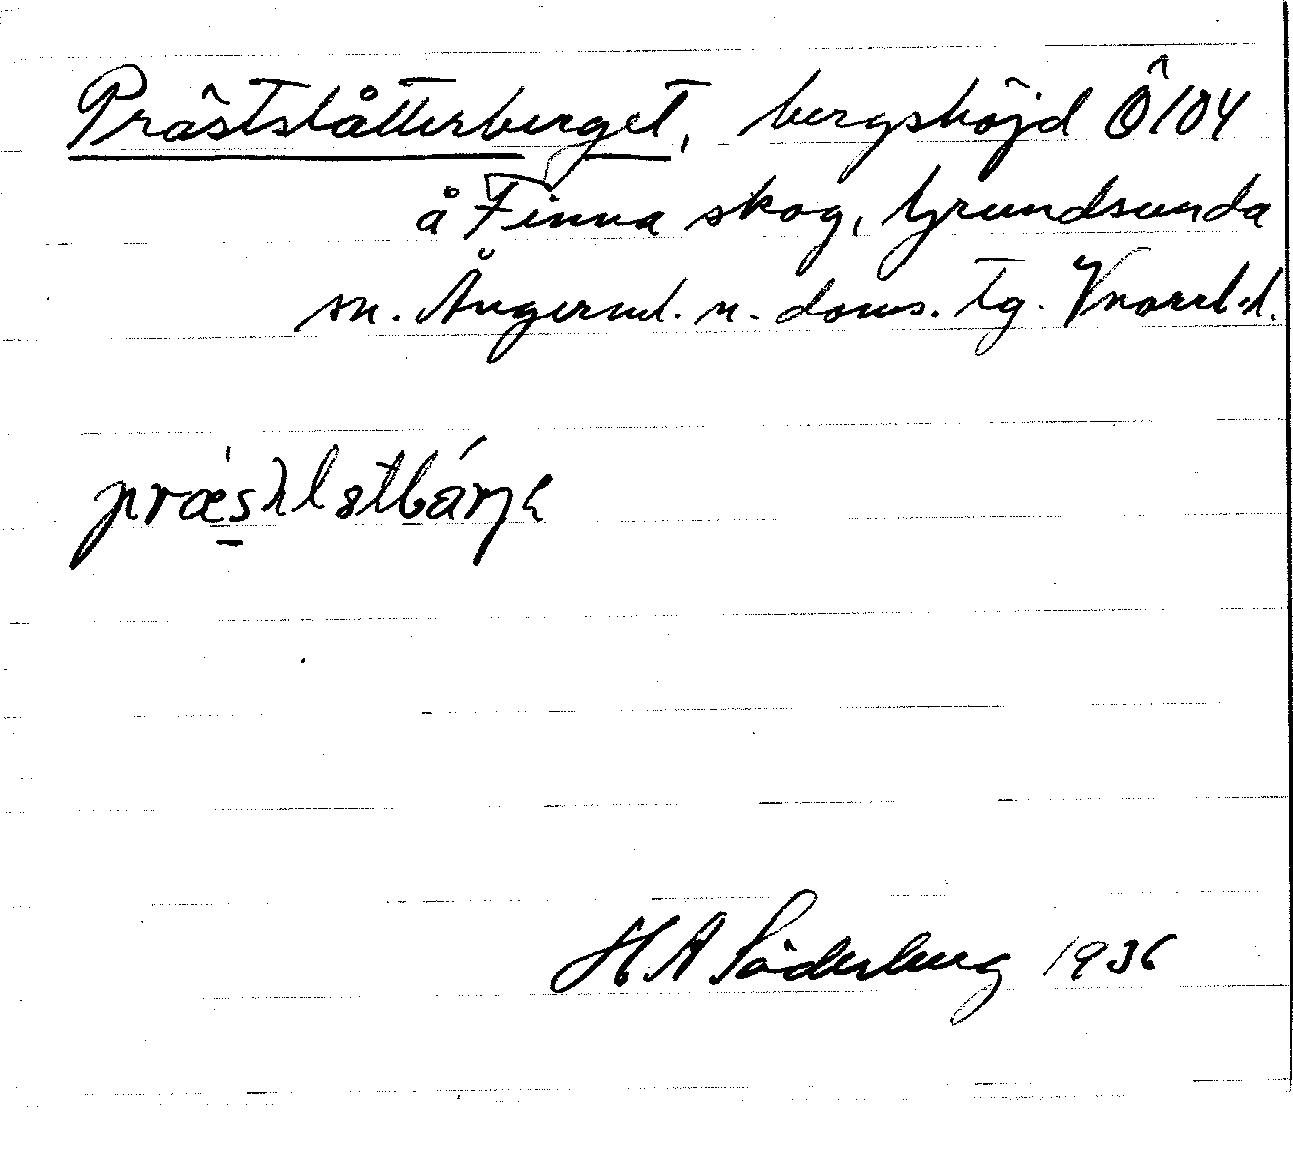 Prästslåtterberget, bergshöjd Ö104
å Finna skog, Grundsunda
sn. Ångerml. n. doms. tg. Vnorrl. l.
H A Söderberg 1936